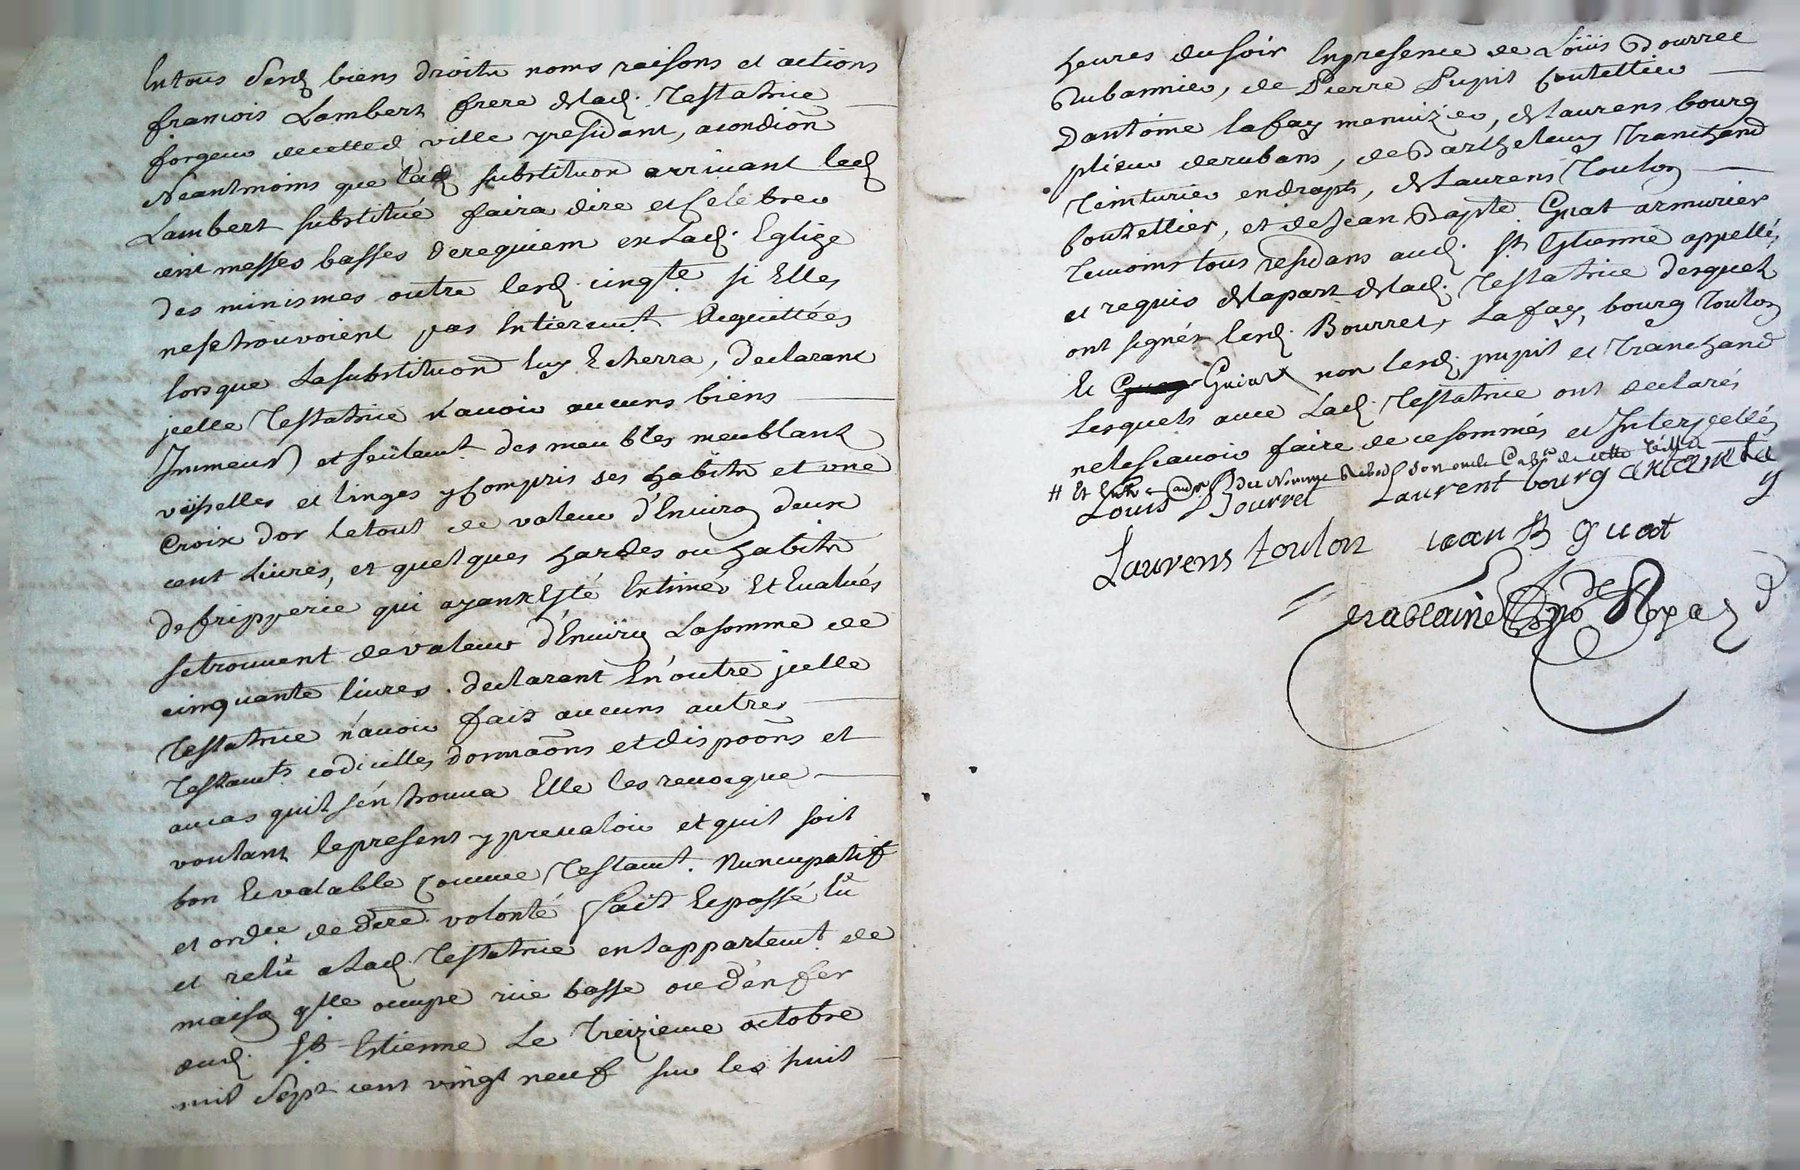 En tous Sesd. biens droits noms raisons et actions
francois Lambert frere de lad. Testatrice
forgeur de cetted. ville y residant, acondiōn
Neantmoins que lad. substituōn arrivant led.
Lambert substitué faira dire et célébrer
cent messes basses de requiem en Lad. Eglize
des minismes outre lesd. cinqte. si Elles
ne se trouvoient pas Entieremt. acquittées
lorsque La substituōn luy Echerra, declarant
jcelle Testatrice n'avoir aucuns biens
Immeub. et seulemt. des meubles meublant
vaisselles et linges y compris ses habits et une
Croix d'or le tout de valeur d'Environ deux
cent Livres, et quelques hardes ou habits
de fripperie qui ayant Esté Estimés Et Evalués
se trouvent de valeur d'Environ La somme de
cinquante livres. declarant En outre jcelle
Testatrice n'avoir fait aucuns autres
Testamts. codicilles donnaōns et dispoōns et
au cas quil s'en trouva Elle les revocque
voulant le present y prevaloir et quil soit
bon Et valable comme Testamt. Nuncupatif
et ordre de derē. volonté fait Et passé lû
et relû a Lad. Testatrice en l'appartemt. de
maison qlle occupe rüe basse ou d'enfer
aud. St. Estienne Le Treizieme octobre
mil Sept cent vingt neuf sur les huit
heures du soir En presence de Loüis Bourret
Rubannier, de Pierre Pupil Coutellier
D'antoine lafay menuizier, de laurens bourg
plieur de rubans, de Barthelemy Tranchand
Teinturier en draps, de Laurens Toulon
Coutellier, et de Jean Bapte. Guat armurier
Temoins tous residans aud. St. Estienne appellés
et requis de la part de lad. Testatrice desquels
ont signés lesd. Bourret, Lafay, bourg Toulon
Et Guiat non lesd. pupil et Tranchand
Lesquels avec Lad. Testatrice ont declarés
ne le scavoir faire de ce sommés et Interpellés
Louis Bourret Laurent bourg
Laurens toulon iean B guat